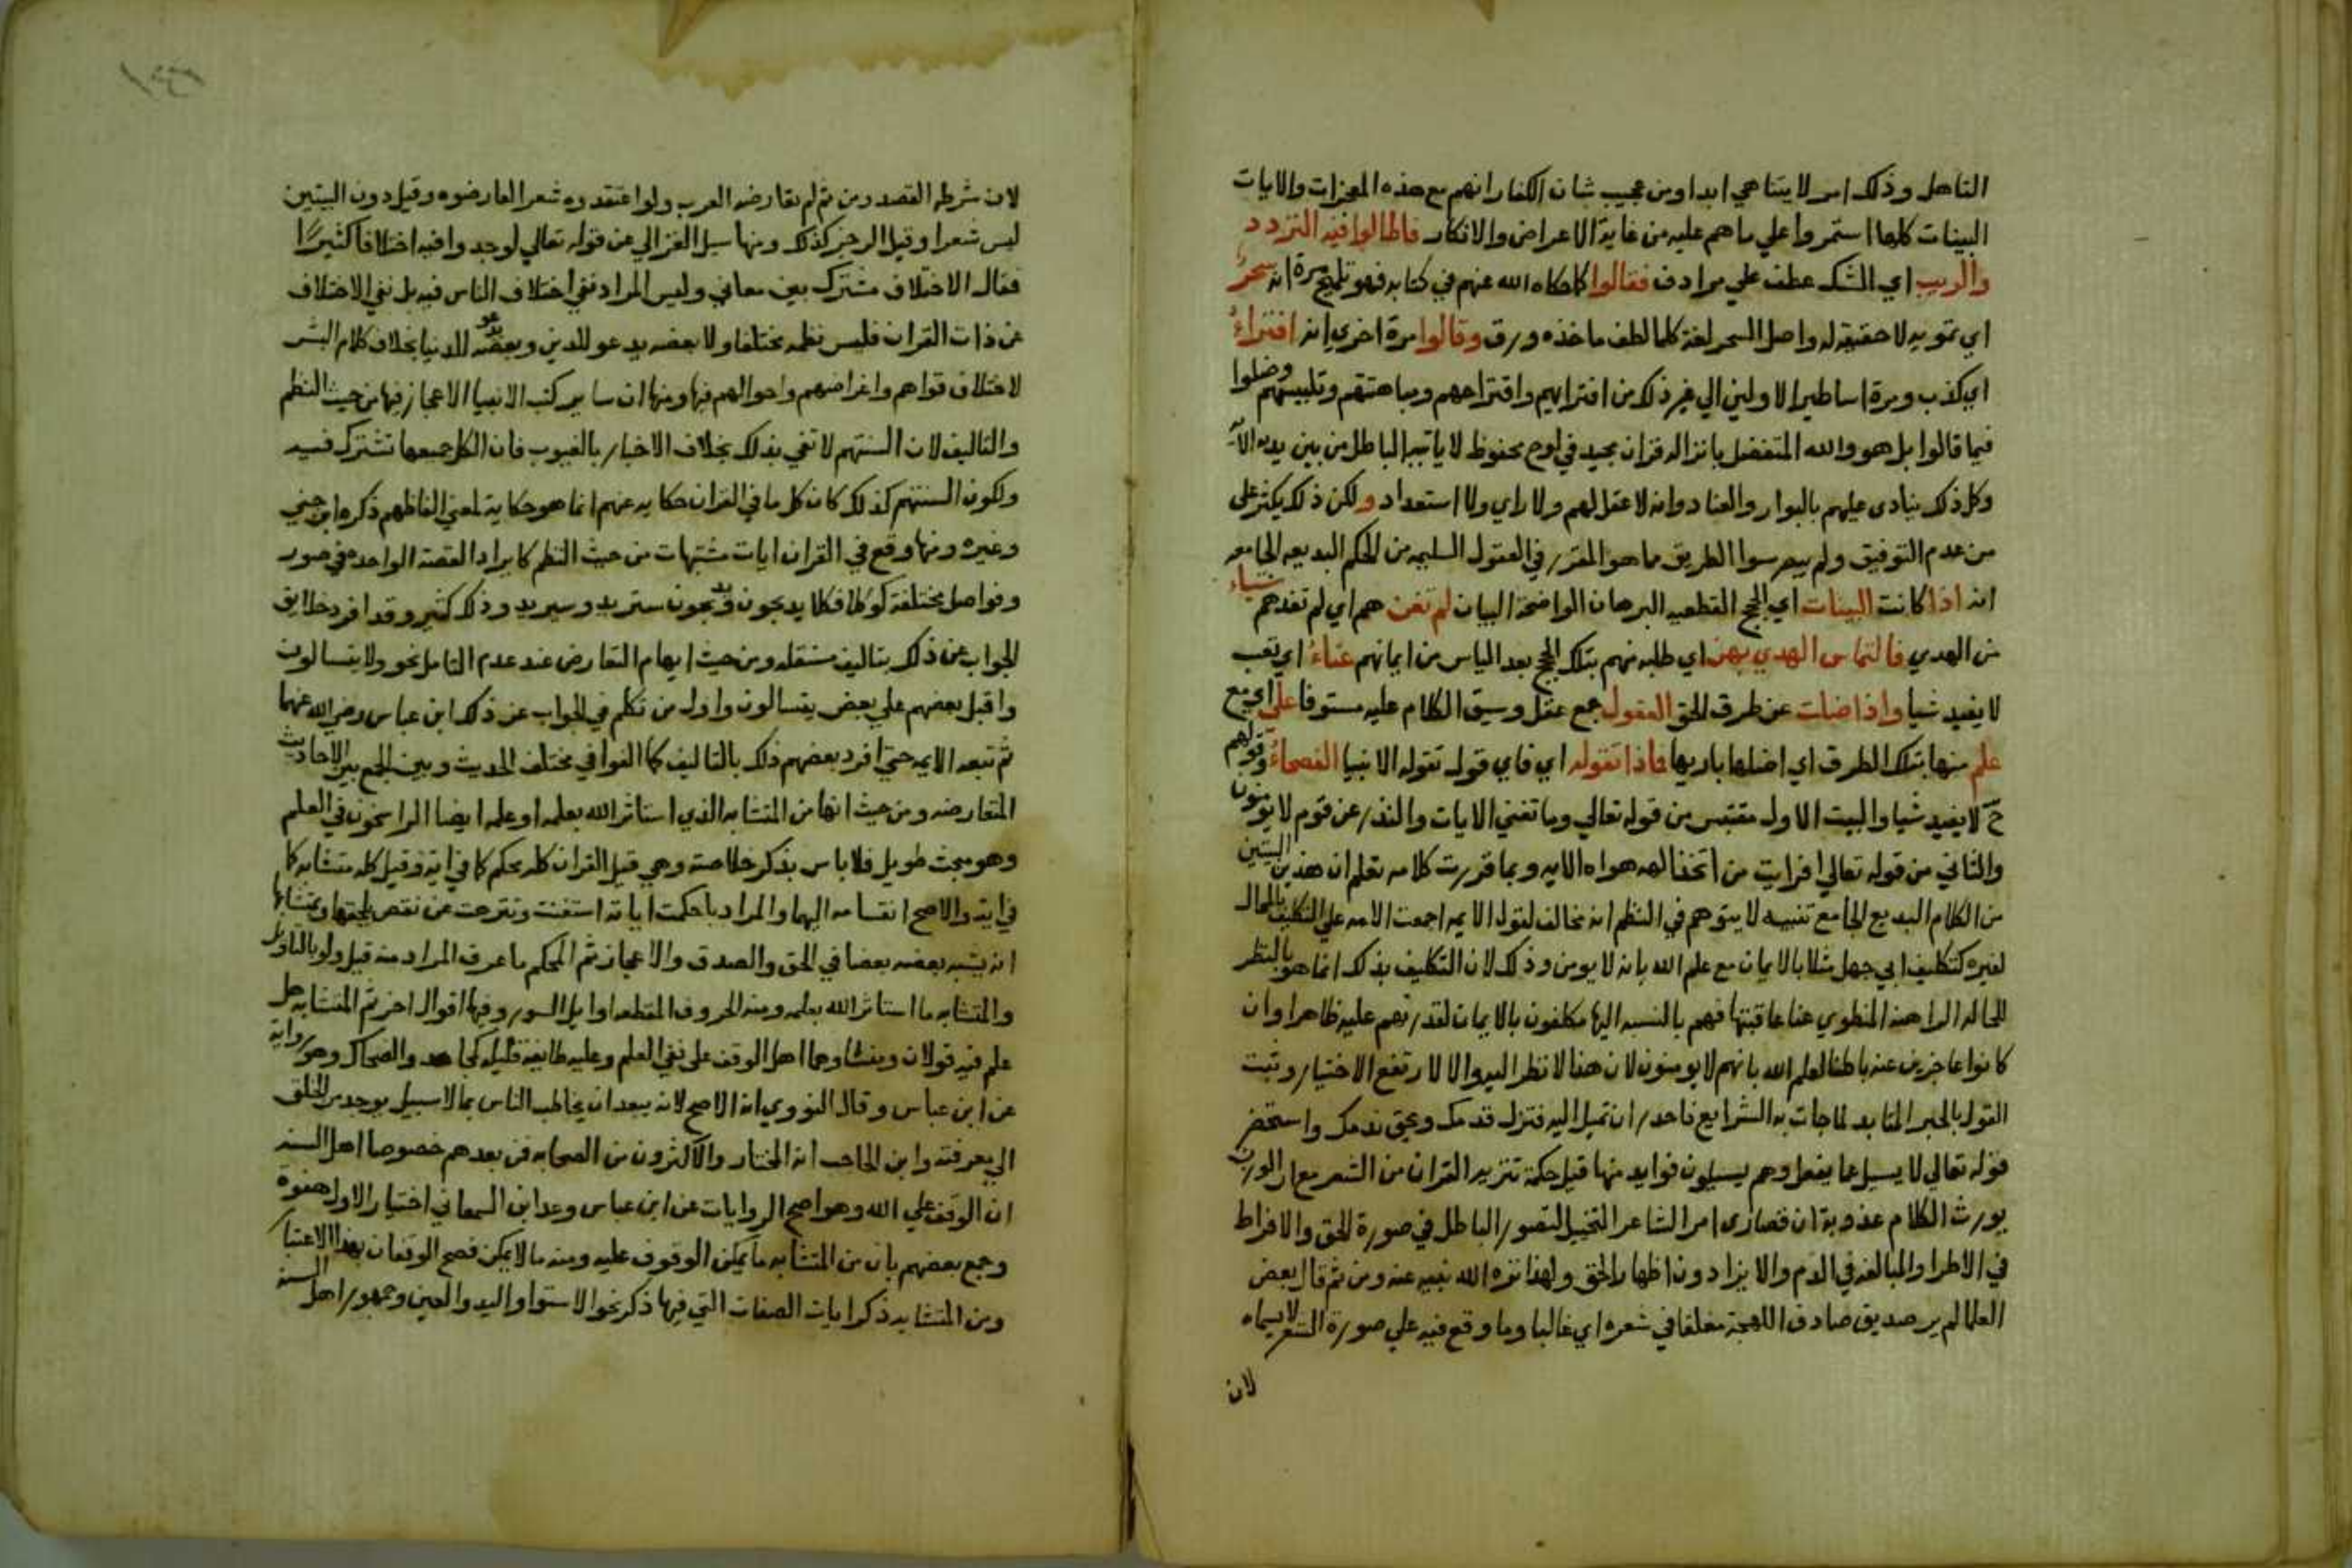 التاهل وذلك امر لا يتناهي ابدا ومن عجيب شان الكفار انهم مع هذه المعجزات والايات
البينات كلها استمروا علي ما هم عليه من غاية الاعراض والانكار فاطالوا فيه التردد
والريب اي الشك عطف علي مرادف فقالوا كما حكاه الله عنهم في كتابه فهو تلميح مرة انه سحر
اي تمويه لا حقيقة له واصل السحر لغة كلما لطف ماخذه ورق وقالوا مرة اخري انه افتراء
اي كذب ومرة اساطير الاولين الي غير ذلك من افترايهم واقتراحهم ومباهتتهم وتلبيسهم وضلوا
فيما قالوا بل هو والله المتفضل بانزاله قران مجيد في لوح محفوظ لا ياتيه الباطل من بين يديه الآية
وكل ذلك ينادي عليهم بالبوار والعناد وانه لا عقل لهم ولا راي ولا استعداد ولكن ذلك يكثر علي
من عدم التوفيق ولم يمرسوا الطريق مما هو المقرر في العقول السليمه من الحكم البديعه الجامعه
انه اذا كانت البينات اي الحجج القطعيه البرهان الواضحة البيان لم تغن هم اي لم تفدهم شياء
من الهدي فالتماس الهدي بهن اي طلبه منهم بتلك الحجج بعد الياس من ايمانهم عناء اي تعب
لا يفيد شيا واذا ضلت عن طرق الحق العقول جمع عقل وسبق الكلام عليه مستوفا علي اي مع
علم منها بتلك الطرق اي اضلها باريها فاذا تقوله اي فاي قول تقوله الانبيا الفصحاء وقولهم
ح لا يفيد شيا والبيت الاول مقتبس من قوله تعالي وما تغني الايات والنذر عن قوم لا يومنون
والثاني من قوله تعالي افرايت من اتخذ الهه هواه الايه وبما قررت كلامه تعلم ان هذين البيتين
من الكلام البديع الجامع تنبيه لا يتوهم في النظم انه مخالف لقول الايمه اجمعت الامه علي التكليف بالمحال
لغيره كتكليف ابي جهل مثلا بالايمان مع علم الله بانه لا يومن وذلك لان التكليف بذلك انما هو بالنظر
للحاله الراهنة المنطوي عنا عاقبتها فهم بالنسبه اليها مكلفون بالايمان لقدرتهم عليه ظاهرا وان
كانوا عاجزين عنه باطنا لعلم الله بانهم لا يومنون لان هذا لا نظر اليه والا لارتفع الاختيار وثبت
القول بالجبر المنابد لما جات به الشرايع فاحدر ان تميل اليه فتزل قدمك ويحق ندمك واستحضر
قوله تعالي لا يسيل عما يفعل وهم يسيلون فوايد منها قيل حكمة تنزيه القران من الشعر مع ان الوزن
يورث الكلام عذوبة ان قصاري امر الشاعر التخييل لتصور الباطل في صورة الحق والافراط
في الاطرا والمبالغه في الذم والايزا دون اظهار الحق ولهذا نزه الله نبيه عنه ومن ثم قال بعض
العلما لم ير صديق صادق اللهجة مغلقا في شعره اي غالبا وما وقع فيه علي صورة الشعر لا يسماه
لان
لان شرطه القصد ومن ثم لم تعارضه العرب ولو اعتقدوه شعرا لعارضوه وقيل دون البيتين
ليس شعرا وقيل الرجز كذلك ومنها سيل الغزالي عن قوله تعالي لوجدوا فيه اختلافا كثيرا
فقال الاختلاف مشترك بين معاني وليس المراد نفي اختلاف الناس فيه بل نفي الاختلاف
عن ذات القران فليس نظمه مختلفا ولا بعضه يدعو للدين وبعضه يدعو للدنيا بخلاف كلام البشر
لاختلاف قواهم واغراضهم واحوالهم فيها ومنها ان ساير كتب الانبيا لا اعجاز فيها من حيث النظم
والتاليف لان السنتهم لا تفي بذلك بخلاف الاخبار بالغيوب فان الكل جميعها تشترك فيه
ولكون السنتهم كذلك كان كل ما في القران حكايه عنهم انما هو حكاية لمعني الفاظهم ذكره ابن جني
وغيره ومنها وقع في القران ايات مشتبهات من حيث النظم كايراد القصة الواحده في صور
وفواصل مختلفة وذلك كثير وقد افرد خلايق
الجواب عن ذلك بتاليف مستقله ومن حيث ايهام التعارض عند عدم التامل نحو ولا يتسالون
واقبل بعضهم علي بعض يتسالون واول من تكلم في الجواب عن ذلك ابن عباس رضي الله عنهما
ثم تبعه الايمه حتي افرد بعضهم ذلك بالتاليف كما الفوا في مختلف الحديث وبين الجمع بين الاحاديث
المتعارضه ومن حيث انها من المتشابه الذي استاثر الله بعلمه او علمه ايضا الراسخون في العلم
وهو مبحث طويل فلا باس بذكر خلاصته وهي قيل القران كله محكم كما في اية وقيل كله متشابه كما
في اية والاصح انقسامه اليهما والمراد باحكمت اياته استغنت وتنزهت عن نقص يلحقها وبمتشابها
انه يشبه بعضه بعضا في الحق والصدق والاعجاز ثم المحكم ما عرف المراد منه قيل ولو بالتاويل
والمتشابه ما استاثر الله بعلمه ومنه الحروف المقطعه اوايل السور وفيها اقوال اخر ثم المتشابه هل
علم فيه قولان ومنشاوهما اهل الوقف علي نفي العلم وعليه طايفة قليله كمجاهد والضحاك وهو رواية
عن ابن عباس وقال النووي انه الاصح لانه يبعد ان يخاطب الناس بما لا سبيل يوجد من الخلق
الي معرفته وابن الحاجب انه المختار والاكثرون من الصحابه فمن بعدهم خصوصا اهل السنه
ان الوقف علي الله وهو اصح الروايات عن ابن عباس وعد ابن السمعاني اختيار الاول هفوة
وجمع بعضهم بان من المتشابه ما يمكن الوقوف عليه ومنه ما لا يمكن فصح الوقفان بهذا الاعتبار
ومن المتشابه ذكر ايات الصفات التي فيها ذكر نحو الاستوا واليد والعين وجمهور اهل السنه